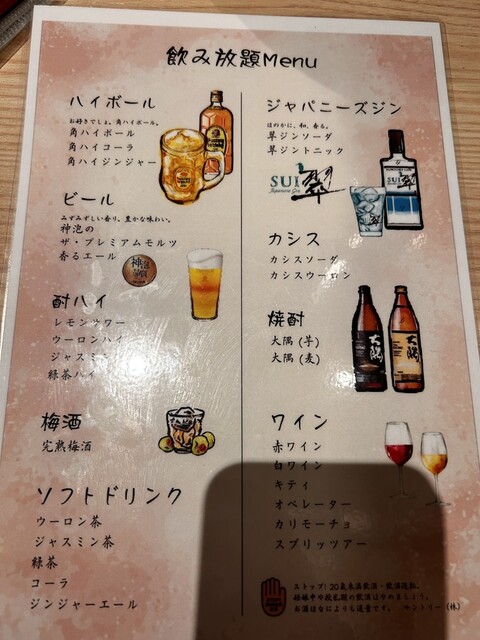 飲み放題Menu
ハイボール
お好きでしょ、角ハイボール。
角ハイボール
角ハイコーラ
角ハイジンジャー
ビール
みずみずしい香り、豊かな味わい。
神泡の
ザ・プレミアムモルツ
香るエール
神泡
酎ハイ
レモンサワー
ウーロンハイ
ジャスミン
緑茶ハイ
梅酒
完熟梅酒
ソフトドリンク
ウーロン茶
ジャスミン茶
緑茶
コーラ
ジンジャーエール
ジャパニーズジン
ほのかに、和、香る。
翠ジンソーダ
翠ジントニック
SUI 翠
Japanese Gin
SUI 翠
カシス
カシスソーダ
カシスウーロン
焼酎
大隅 (芋)
大隅 (麦)
大隅
大隅
ワイン
赤ワイン
白ワイン
キティ
オペレーター
カリモーチョ
スプリッツアー
ストップ! 20歳未満飲酒・飲酒運転。
妊娠中や授乳期の飲酒はやめましょう。
お酒はなによりも適量です。 サントリー (株)